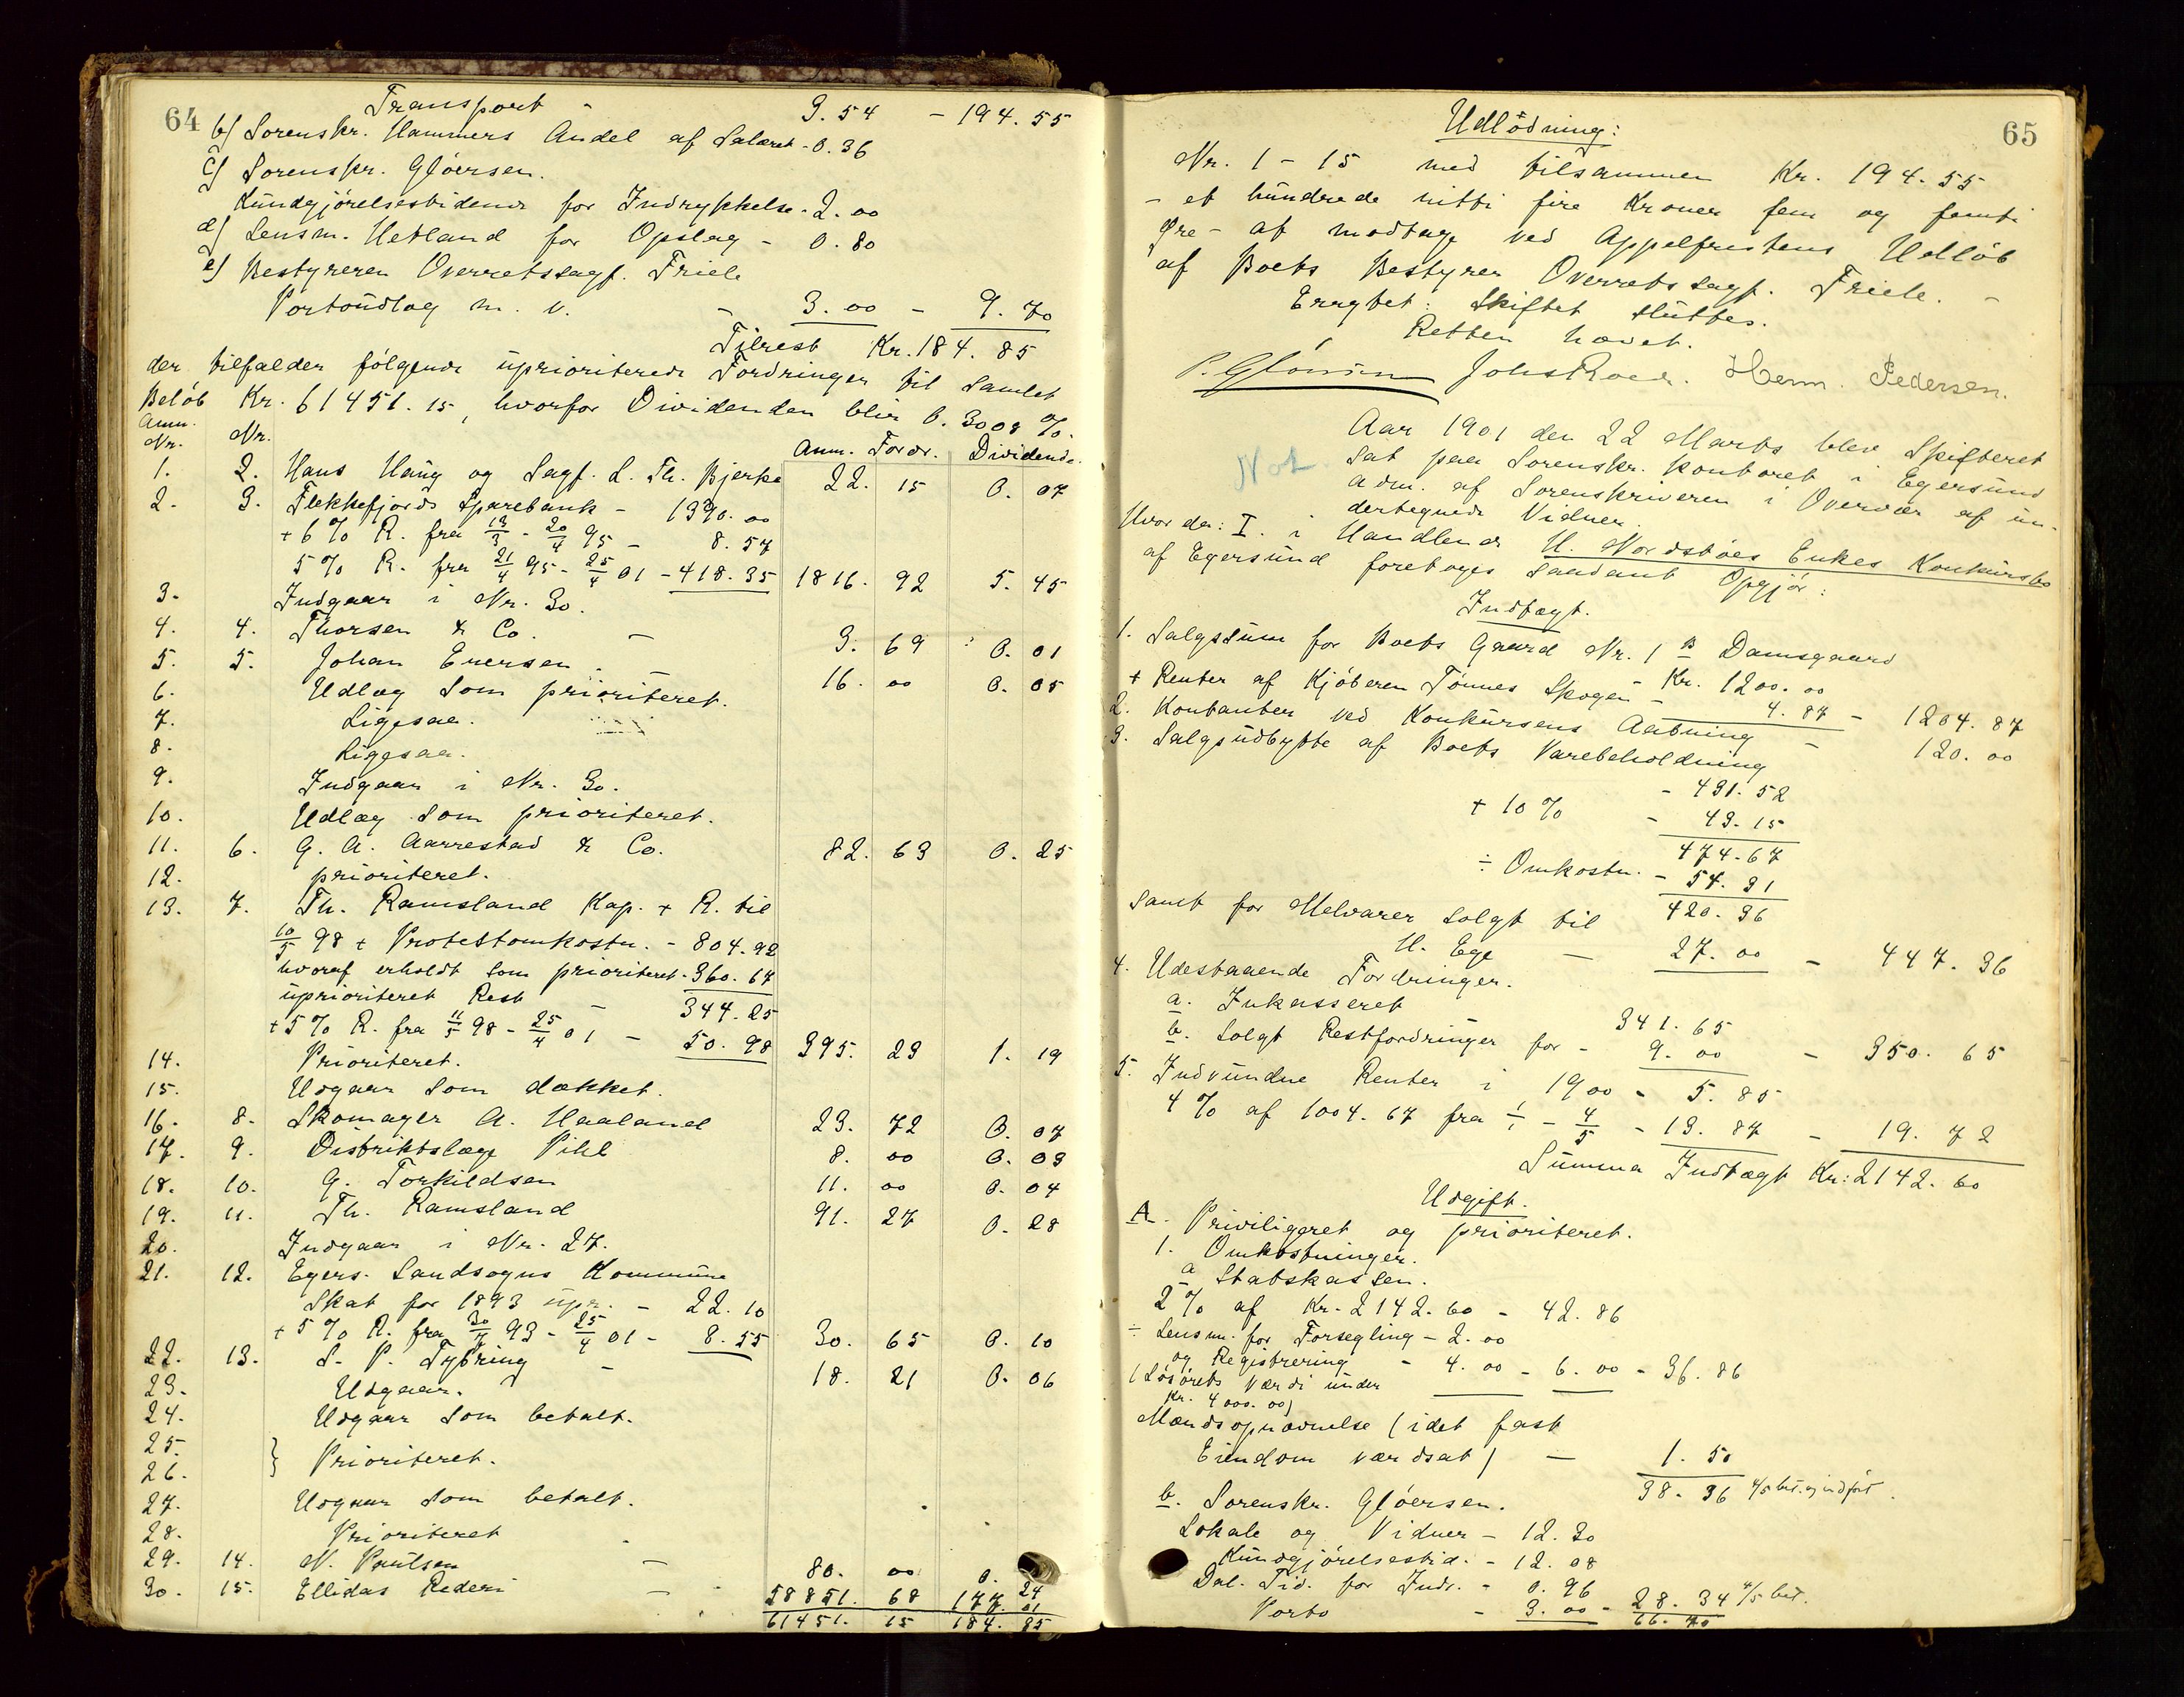 64
Transport - 3.54 - 194.55
b) Sorenskr. Hammers Andel af Salæret - 0.36
c) Sorenskr. Gløersen.
Kundgjørelsestidende for Indrykkelse - 2.00
d) Lensm. Hetland for Opslag - 0.80
e) Bestyreren Overretssagf. Friele
Portoudlæg m. v. - 3.00 - 9.70
Tilrest Kr. 184.85
der tilfalder følgende uprioriterede Fordringer til samlet
Beløb Kr. 61451.15, hvorfor Dividenden blir 0.3008 %.
Anm. Nr. Nr. Anm. Fordr. Dividende.
1. 2. Hans Haug og Sagf. L. Th. Bjerke 22. 15 0. 07
2. 3. Flekkefjords Sparebank - 1390.00
+ 6 % R. fra 13/3 - 20/4 95 - 8.57
5 % R. fra 21/4 95 - 25/4 01 - 418.35 1816. 92 5. 45
3. Indgaar i Nr. 30.
4. 4. Thorsen & Co. - 3. 69 0. 01
5. 5. Johan Eversen - 16. 00 0. 05
6. Udlæg som prioriteret.
7. Ligesaa.
8. Ligesaa.
9. Indgaar i Nr. 30.
10. Udlæg som prioriteret.
11. 6. G. A. Aarrestad & Co. 82. 63 0. 25
12. prioriteret.
13. 7. Th. Ramsland Kap. + R. til
10/5 98 + Protestomkostn. - 804.92
hvoraf erholdt som prioriteret - 360.67
uprioriteret Rest - 344.25
+ 5 % R. fra 11/5 98 - 25/4 01 - 50.98 395. 23 1. 19
14. Prioriteret.
15. Udgaar som dækket.
16. 8. Skomager A. Haaland 23. 72 0. 07
17. 9. Distriktslæge Pihl 8. 00 0. 03
18. 10. G. Torkildsen 11. 00 0. 04
19. 11. Th. Ramsland 91. 27 0. 28
20. Indgaar i Nr. 27.
21. 12. Egers. Landsogns Kommune
Skat for 1893 upr. - 22.10
+ 5 % R. fra 30/7 93 - 25/4 01 - 8.55 30. 65 0. 10
22. 13. S. P. Tybring - 18. 21 0. 06
23. Udgaar.
24. Udgaar som betalt.
25. } Prioriteret.
26.
27. Udgaar som betalt.
28. Prioriteret
29. 14. N. Poulsen - 80. 00 0. 24
30. 15. Ellidas Rederi - 58851. 68 177. 01
61451. 15 184. 85
65
Udlödning:
Nr. 1 - 15 med tilsammen Kr. 194.55
- et hundrede nitti fire Kroner fem og femti
Øre - at modtage ved Appelfristens Udløb
af Boets Bestyrer Overretssagf. Friele. -
Eragtet: Skiftet sluttes.
Retten hævet.
P. Gløersen Johs Roed. Herm. Pedersen.
Not.
Aar 1901 den 22 Marts blev Skifteret
sat paa Sorenskr. kontoret i Egersund
adm. af Sorenskriveren i Overvær af un-
dertegnede Vidner.
Hvor da: I. i Handlende H. Nordstøes Enkes Konkursbo
af Egersund foretoges saadant Opgjør:
Indtægt.
1. Salgssum for Boets Gaard Nr. 1 B Damsgaard
Kr. 1200.00
+ Renter af Kjøberen Tønnes Skogen - 4.87 - 1204.87
2. Kontanter ved Konkursens Aabning - 120.00
3. Salgsudbytte af Boets Varebeholdning
- 431.52
+ 10 % - 43.15
474.67
÷ Omkostn. - 54.31
420.36
samt for Melvarer solgt til
H. Ege - 27.00 - 447.36
4. Udestaaende Fordringer.
a. Inkasseret 341.65
b. Solgt Restfordringer for - 9.00 - 350.65
5. Indvundne Renter i 1900 - 5.85
4 % af 1004.67 fra 1/1 - 4/5 - 13.87 - 19.72
Summa Indtægt Kr: 2142.60
Udgift.
A. Priviligeret og prioriteret.
1. Omkostninger.
a Statskassen.
2 % af Kr. 2142.60 - 42.86
÷ Lensm. for Forsegling - 2.00
og Registrering - 4.00 - 6.00 - 36.86
(Løsørets Værdi under
Kr. 4000.00)
Mændsopnævnelse (idet fast
Eiendom værdsat) - 1.50
38.36 4/5 bet. og indført.
b. Sorenskr. Gløersen.
Lokale og Vidner - 12.30
Kundgjørelsestid. - 12.08
Dal. Tid. for Indr. - 0.96
Porto - 3.00 - 28.34 4/5 bet.
66.70